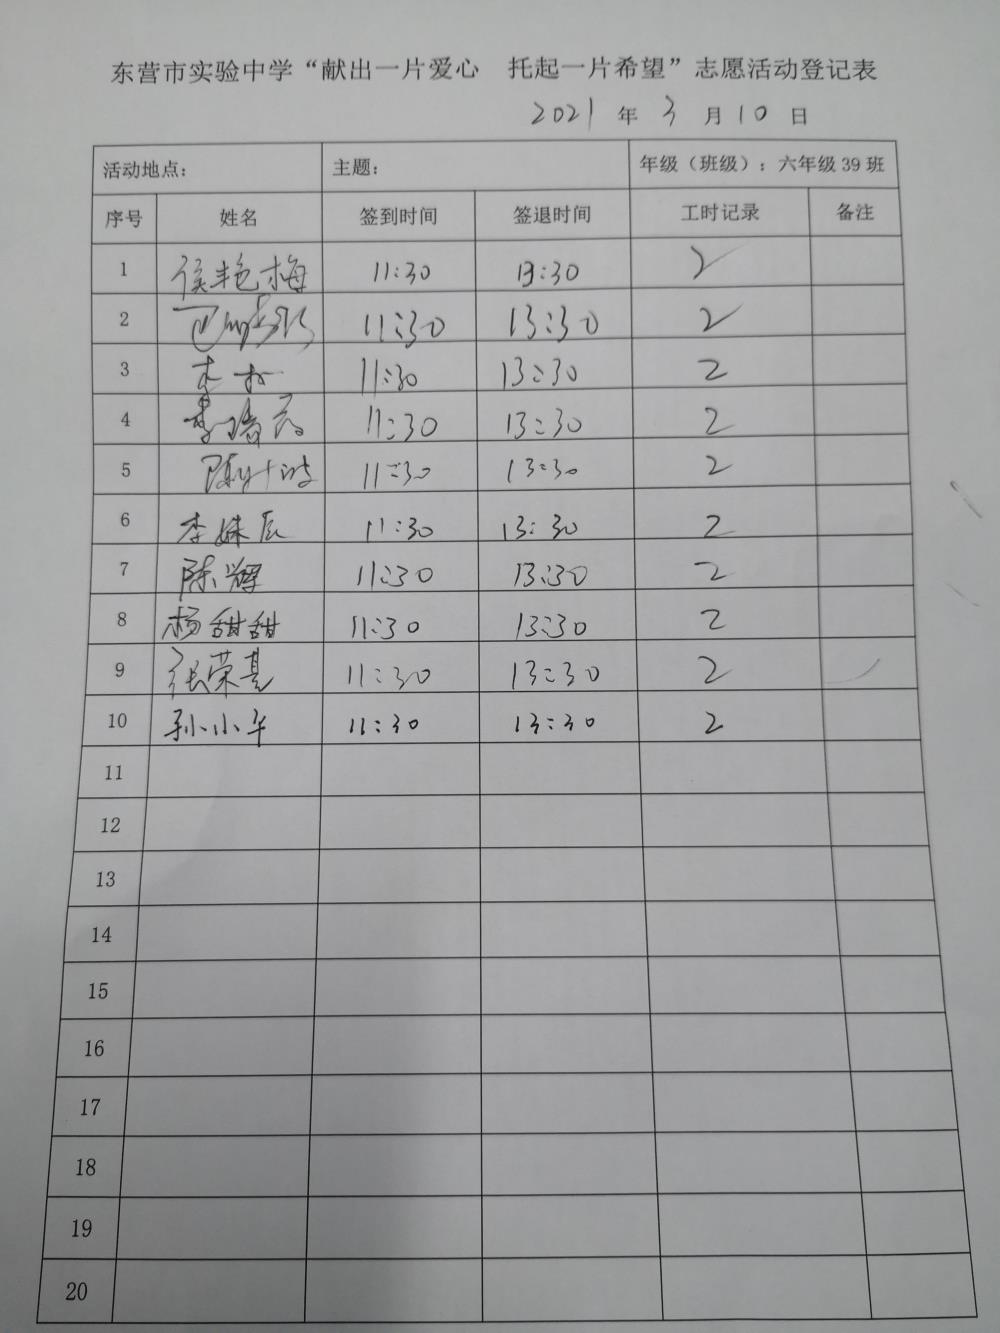 东营市实验中学“献出一片爱心 托起一片希望”志愿活动登记表
2021 年 3 月 10 日
活动地点： 主题： 年级（班级）：六年级 39 班
序号 姓名 签到时间 签退时间 工时记录 备注
1 侯艳梅 11:30 13:30 2
2 11:30 13:30 2
3 11:30 13:30 2
4 11:30 13:30 2
5 11:30 13:30 2
6 李姝辰 11:30 13:30 2
7 陈辉 11:30 13:30 2
8 杨甜甜 11:30 13:30 2
9 张荣基 11:30 13:30 2
10 孙小华 11:30 13:30 2
11
12
13
14
15
16
17
18
19
20